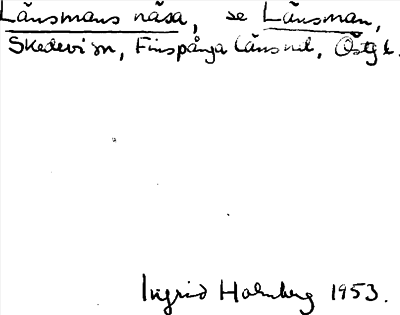 Länsmans näsa, se Länsman,
Skedevi sn, Finspånga läns hd, Östg l.
Ingrid Holmberg 1953.